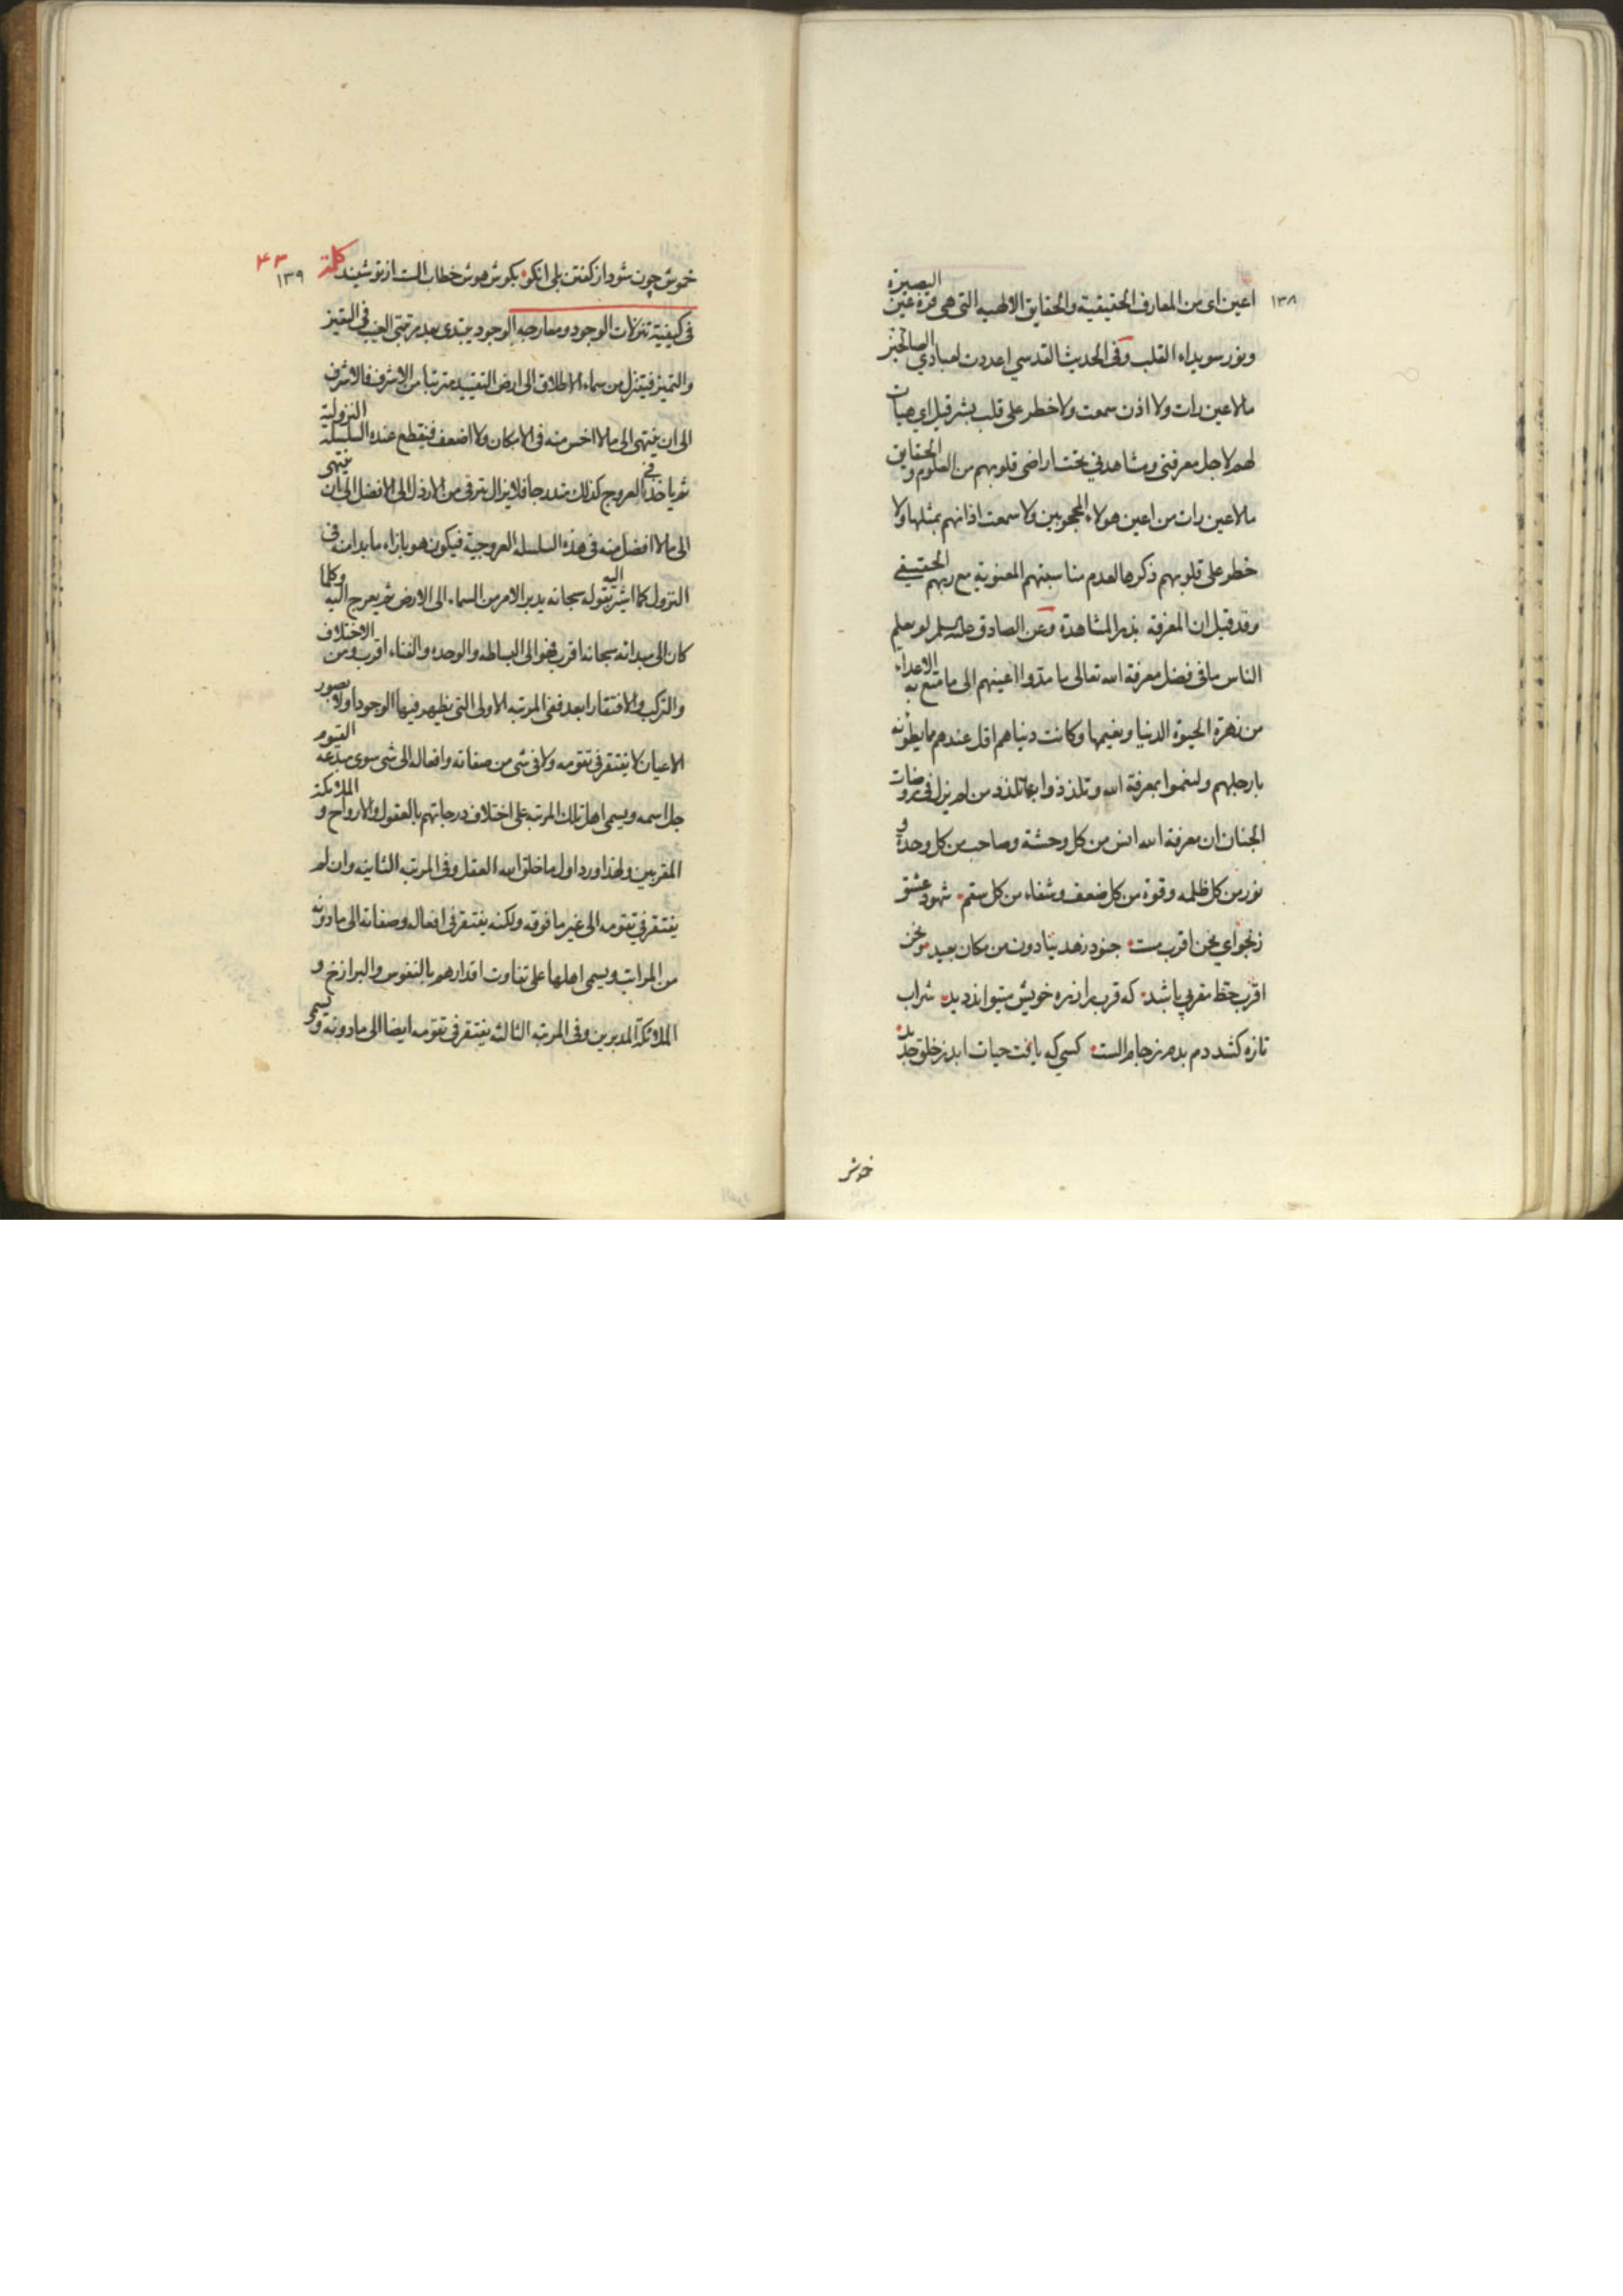 ١٣٨
اعين اى من المعارف الحقيقية والحقايق الالهيه التى هى قرة عين البصيرة
ونور سويداء القلب وفى الحديث القدسي اعددت لعبادي الصالحين
مالا عين رات ولا اذن سمعت ولا خطر على قلب بشر قيل اى هيات
لهم لاجل معرفتى ومشاهدتي تحت اراضى قلوبهم من العلوم والحقايق
مالا عين رات من اعين هولاء المحجوبين ولا سمعت اذانهم بمثلها ولا
خطر على قلوبهم ذكرها لعدم مناسبتهم المعنويه مع ربهم الحقيقي
وقد قيل ان المعرفة بذر المشاهدة وعن الصادق عليه السلم لو يعلم
الناس ما فى فضل معرفة الله تعالى ما مدوا اعينهم الى ما متع به الاعداء
من زهرة الحيوة الدنيا ونعيمها وكانت دنياهم اقل عندهم مما يطؤنه
بارجلهم ولنعموا بمعرفة الله وتلذذوا بها تلذذ من لم يزل فى روضات
الجنان ان معرفة الله انس من كل وحشة وصاحب من كل وحدة و
نور من كل ظلمه وقوة من كل ضعف وشفاء من كل سقم شهود عشق
زنجواي نحن اقرب مست جنود زهد ينادون من مكان بعيد ز نحن
اقرب حظ مقربي باشد كه قرب را ز ره خويش ميتواند ديد شراب
تازه كشد دم بدم ز جام الست كسي كه يافت حيات ابد ز خلق جديد
خموش
كلمة
۴۳
١٣٩
خموش چون شود از كفتن بلى انكو بكوش هوش خطاب الست از تو شنيد
فى كيفية تنزلات الوجود ومعارجه الوجود يبتدى بعد مرتبتى الغيب فى التعين
والتميز فيتنزل من سماء الاطلاق الى ارض التقييد مترتبا من الاشرف فالاشرف
الى ان ينتهى الى مالا اخس منه فى الامكان ولا اضعف فينقطع عنده السلسلة النزولية
ثم ياخذ فى العروج كذلك متدرجا فلا يزال يترقى من الارذل الى الافضل الى ان ينتهى
الى مالا افضل منه فى هذه السلسله العروجية فيكون هو بازاء ما بدا منه فى
النزول كما اشير اليه بقوله سبحانه يدبر الامر من السماء الى الارض ثم يعرج اليه وكلما
كان الى مبدائه سبحانه اقرب فهو الى البساطه والوحده والغناء اقرب ومن الاختلاف
والتركب والافتقار ابعد ففى المرتبه الاولى التى يظهر فيها الوجود اولا بصور
الاعيان لا يفتقر فى تقومه ولا فى شى من صفاته وافعاله الى شى سوى مبدعه القيوم
جل اسمه ويسمى اهل تلك المرتبه على اختلاف درجاتهم بالعقول والارواح والملائكة
المقربين ولهذا ورد اول ما خلق الله العقل وفى المرتبه الثانيه وان لم
يفتقر فى تقومه الى غير ما فوقه ولكنه يفتقر فى افعاله وصفاته الى مادونه
من المراتب ويسمى اهلها على تفاوت اقدارهم بالنفوس والبرازخ و
الملائكة المدبرين وفى المرتبه الثالثه يفتقر فى تقومه ايضا الى مادونه ويسمى